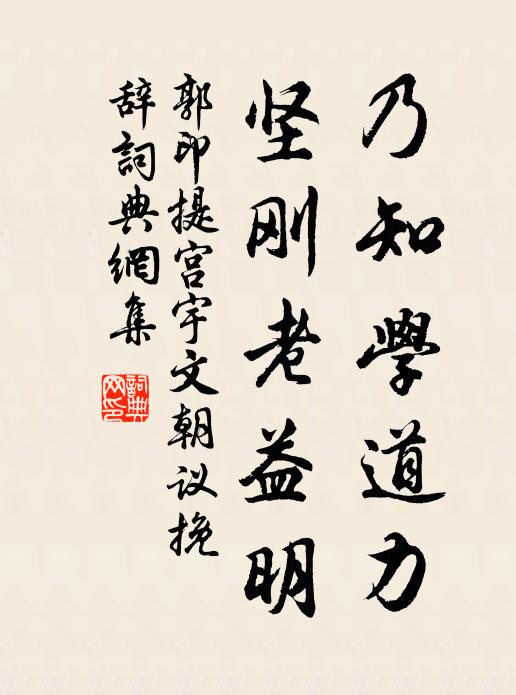 乃知学道力
坚刚老益明
郭印提宫宇文朝议挽
辞词典網集
詞典網印